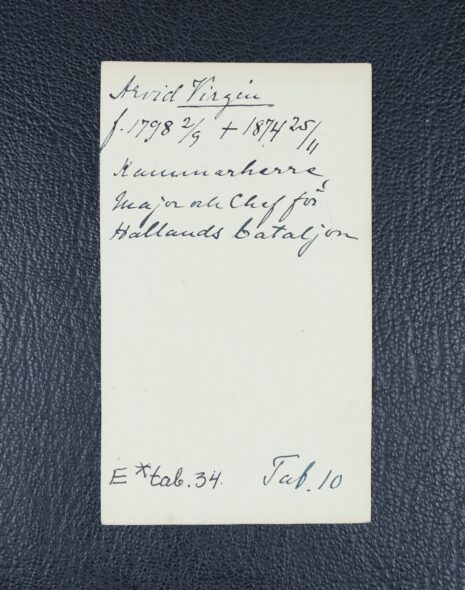 Arvid Virgin
f. 1798 2/9 + 1874 25/11
Kammarherre,
Major och Chef för
Hallands bataljon
E * tab. 34.
Tab. 10